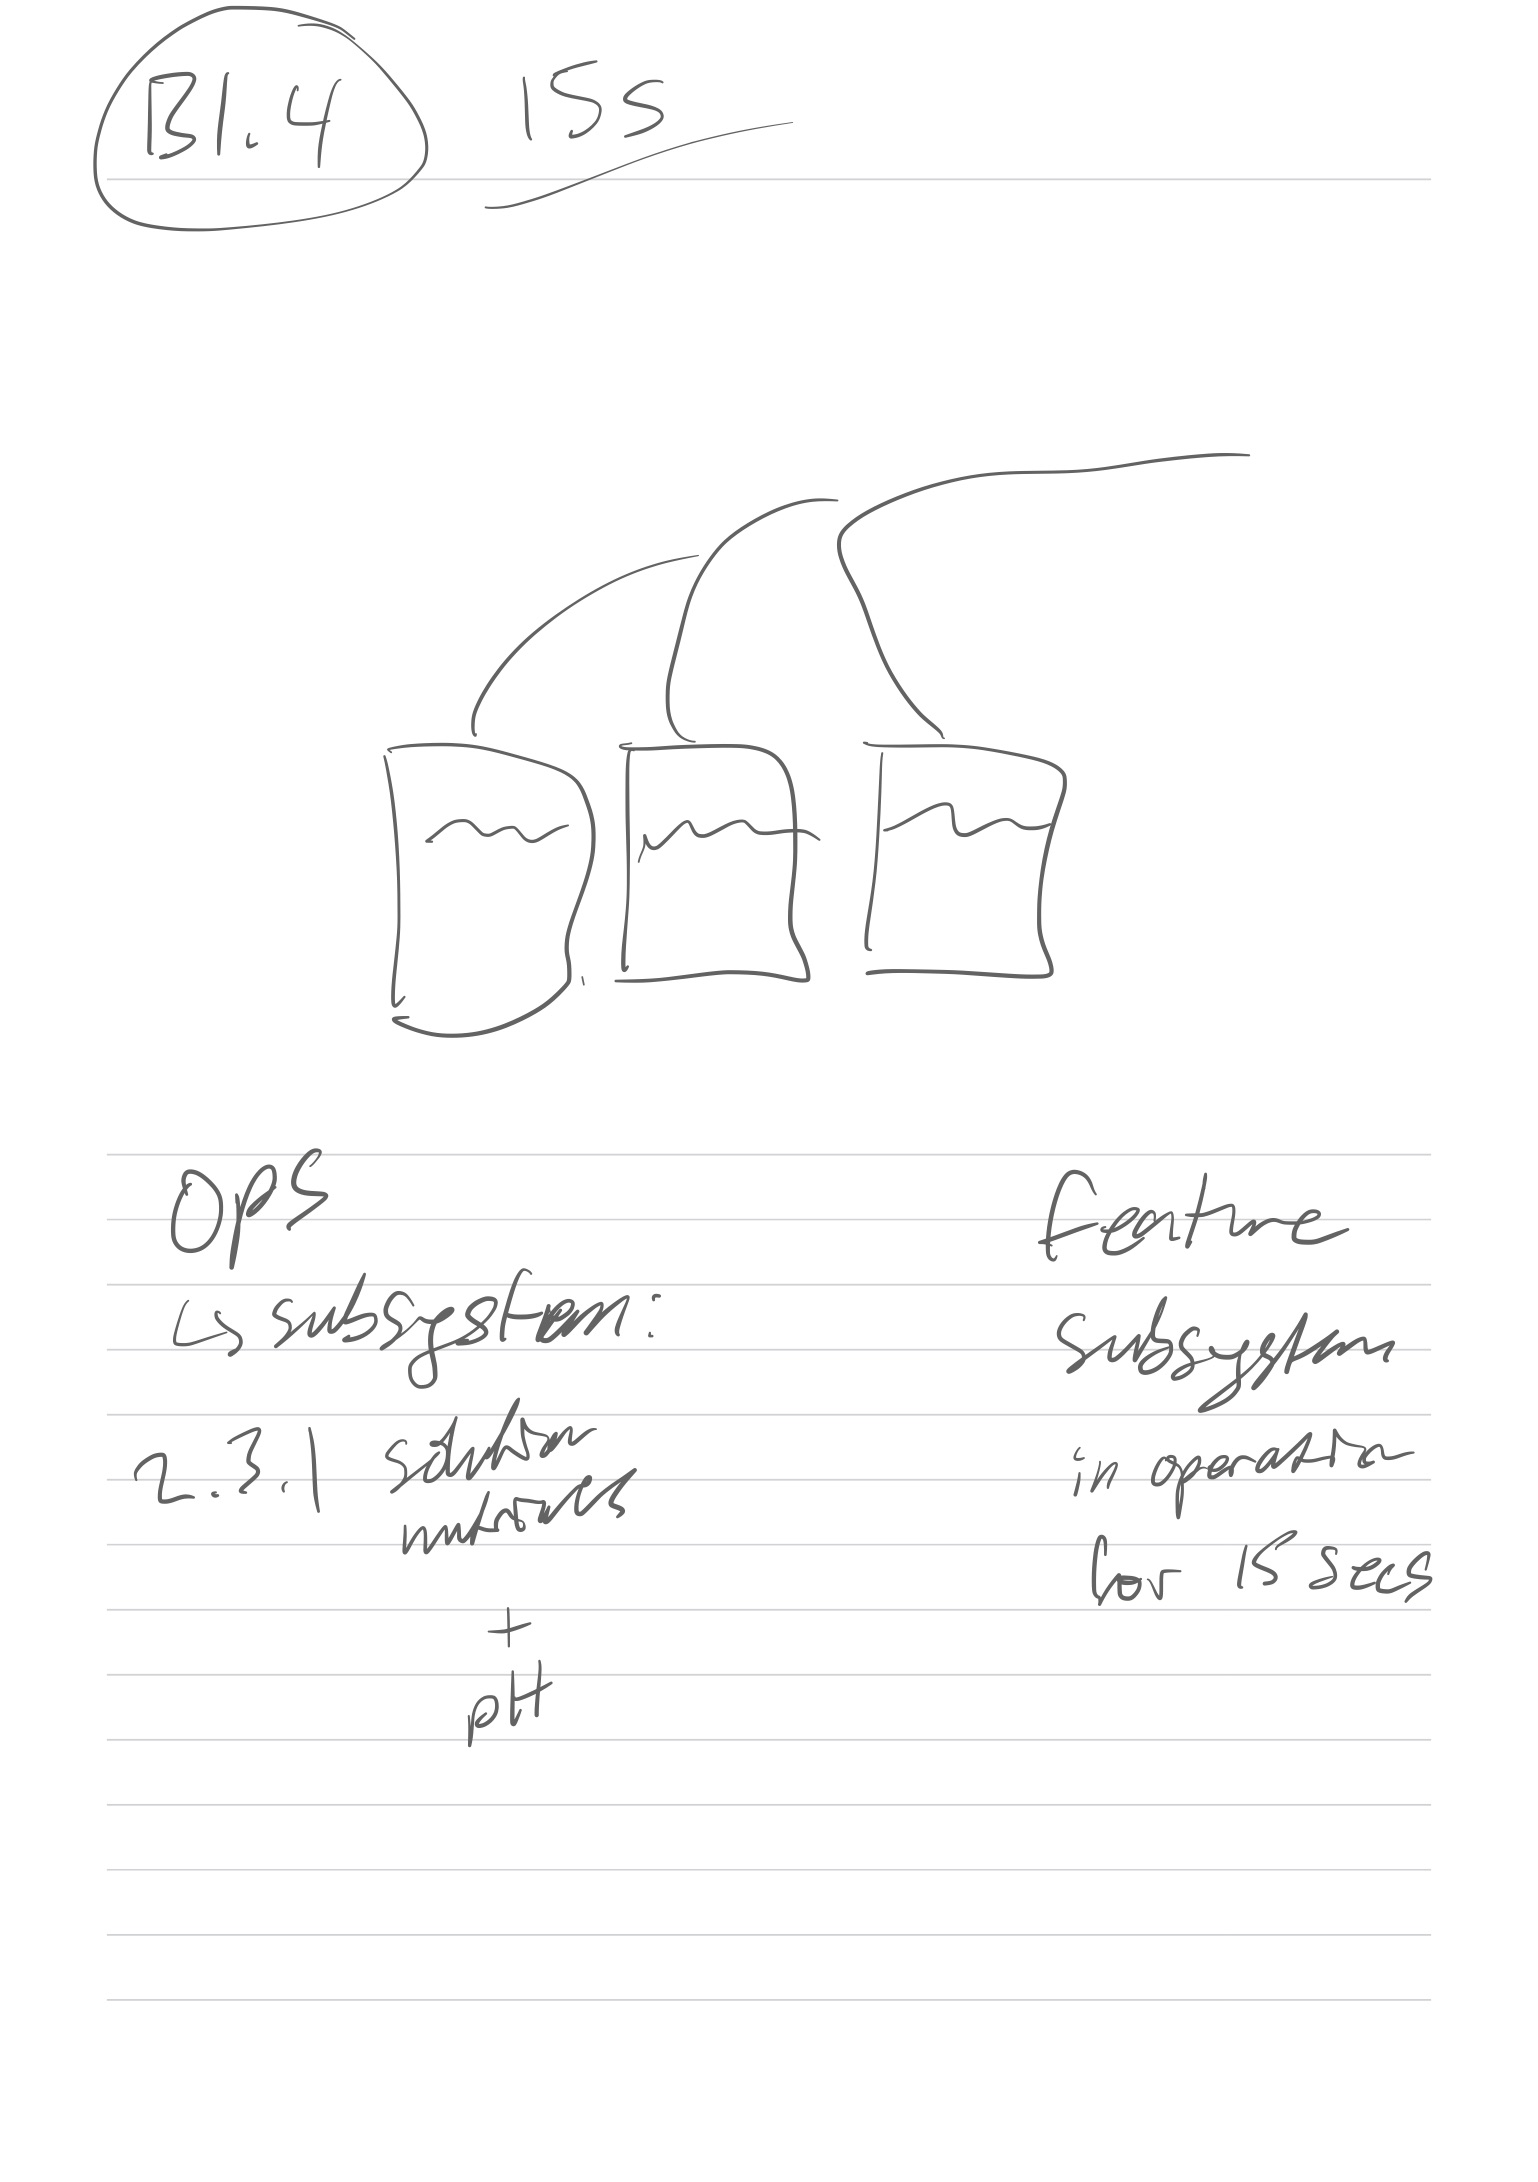 B1.4 15s
Ops
↳ subsystem:
2.3.1 solution
nutrients
+
pH
Feature
subsystem
in operation
for 15 secs